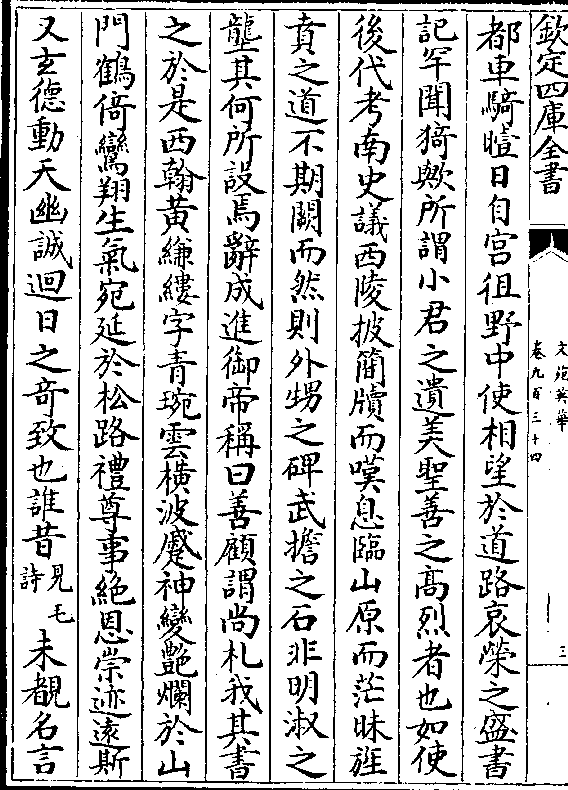 欽定四庫全書
文苑英華
卷九百三十四
三
都車騎曀日自宫徂野中使相望於道路哀榮之盛書
記罕聞猗歟所謂小君之遺美聖善之髙烈者也如使
後代考南史議西陵披簡牘而嘆息臨山原而茫昧旌
賁之道不期闕而然則外甥之碑武擔之石非明淑之
壟其何所設焉辭成進御帝稱曰善顧謂尚札我其書
之於是西翰黄縑縷字青琬雲橫波蹙神變艶爛於山
門鶴倚鸞翔生氣宛延於松路禮尊事絶恩崇迹逺斯
又玄徳動天幽誠迴日之竒致也誰昔見毛詩未覩名言